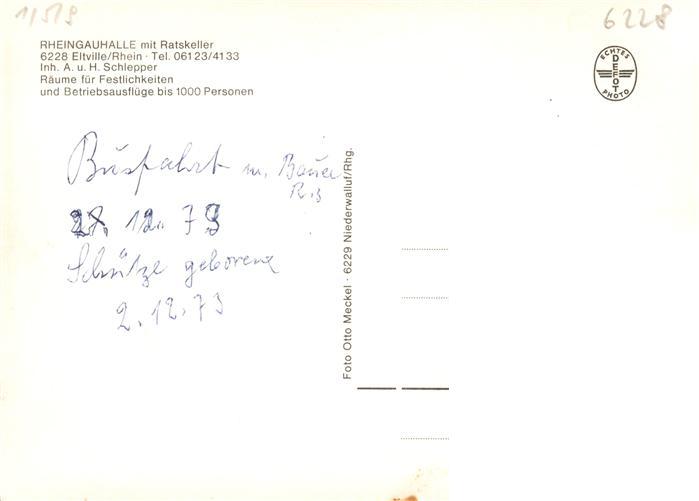 11/5/9
6228
RHEINGAUHALLE mit Ratskeller
6228 Eltville/Rhein · Tel. 06123/4133
Inh. A. u. H. Schlepper
Räume für Festlichkeiten
und Betriebsausflüge bis 1000 Personen
ECHTES
DEFOT
PHOTO
Busfahrt m. Bauer
R.
12. 73
Schütze geborene
2. 12. 73
Foto Otto Meckel · 6229 Niederwalluf/Rhg.